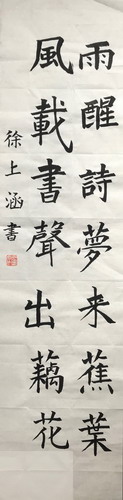 雨醒詩夢来蕉葉
風載書聲出藕花
徐上涵書